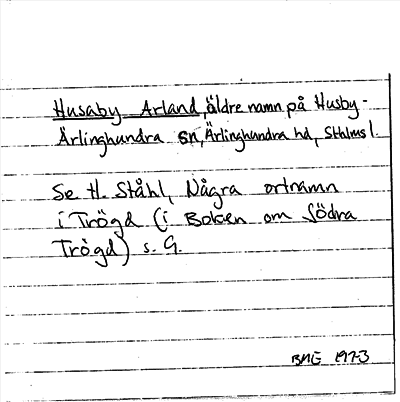 Husaby Arland, äldre namn på Husby-
Ärlinghundra sn, Ärlinghundra hd, Sthlms l.
Se H. Ståhl, Några ortnamn
i Trögd (i Boken om Södra
Trögd) s. 9.
BME 1973